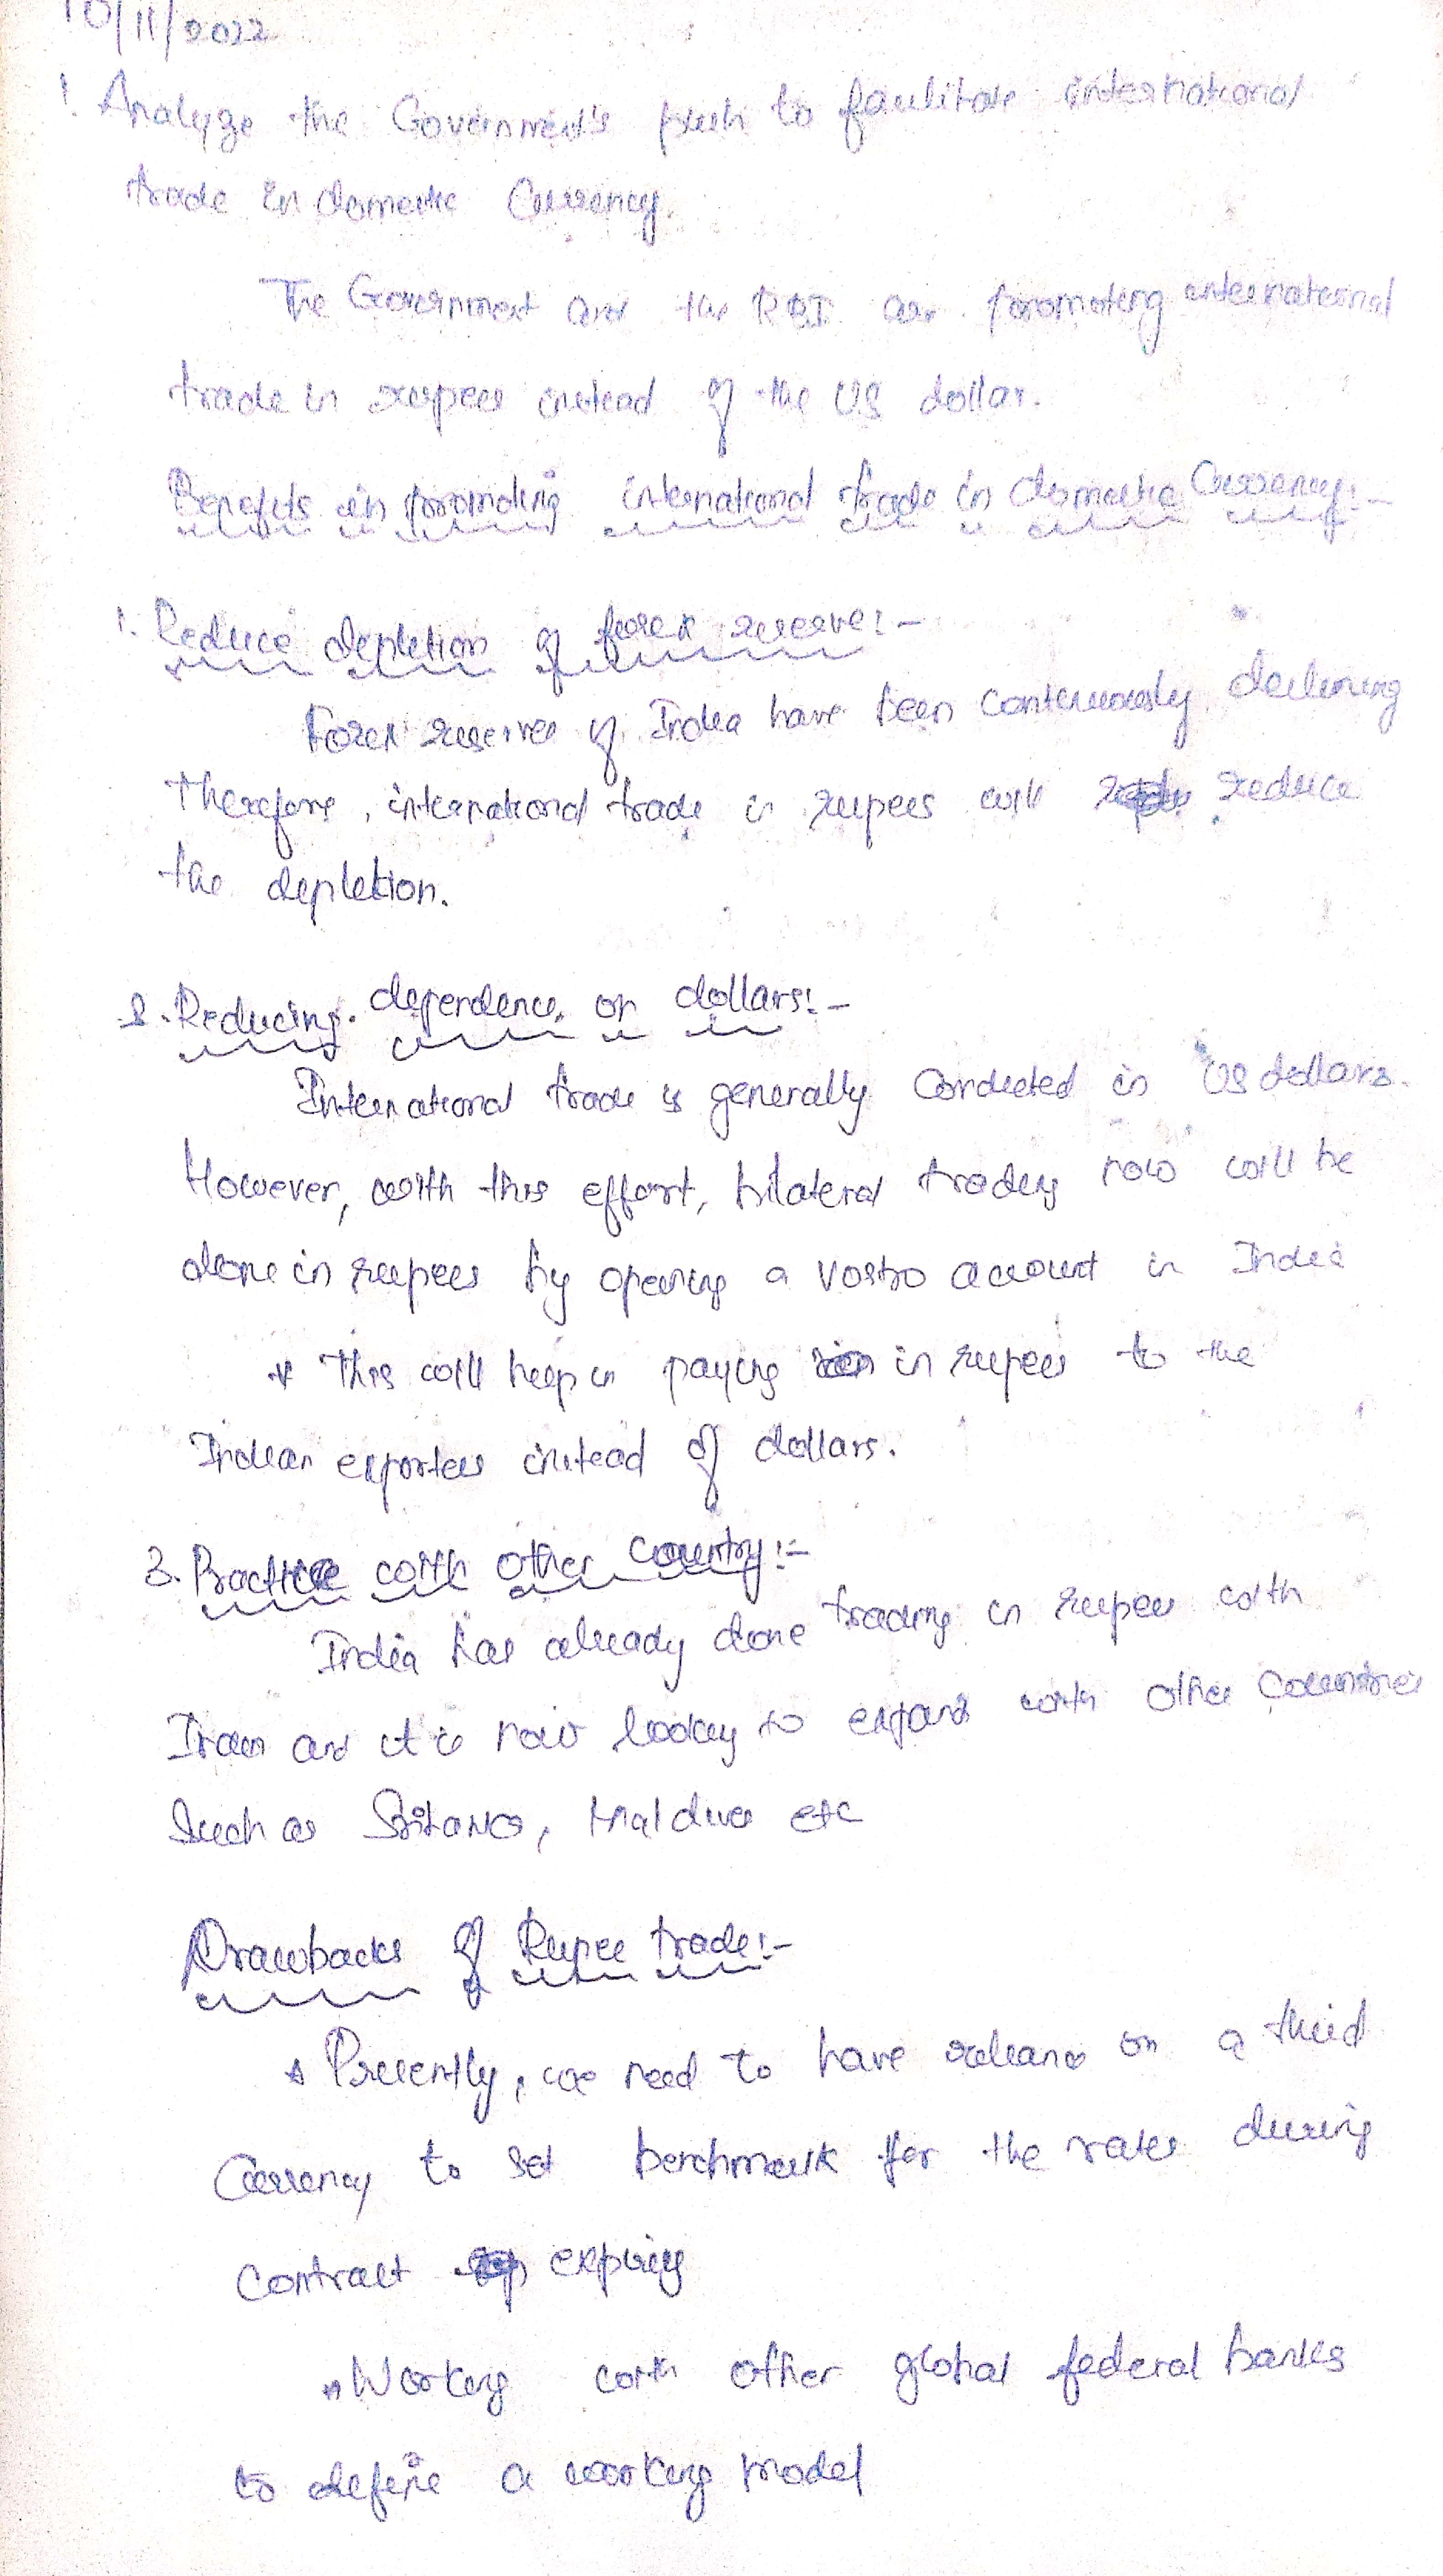 10/11/2022
1. Analyze the Government's push to facilitate international
trade in domestic Currency.
The Government and the RBI are promoting international
trade in rupees instead of the US dollar.
Benefits in promoting international trade in domestic Currency:-
1. Reduce depletion of forex reserve:-
Forex reserves of India have been continuously declining
Therefore, international trade in rupees will reduce
the depletion.
2. Reducing dependence on dollars:-
International trade is generally Conducted in US dollars.
However, with this effort, bilateral trading now will be
done in rupees by opening a vostro account in India
* This will help in paying in rupees to the
Indian exporters instead of dollars.
3. Practice with other country:-
India has already done trading in rupees with
Iran and it is now looking to expand with other Countries
Such as Srilanka, Maldives etc
Drawbacks of Rupee trade:-
* Presently, we need to have reliance on a third
Currency to set benchmark for the rates during
Contract expiry
* Working with other global federal banks
to define a working model